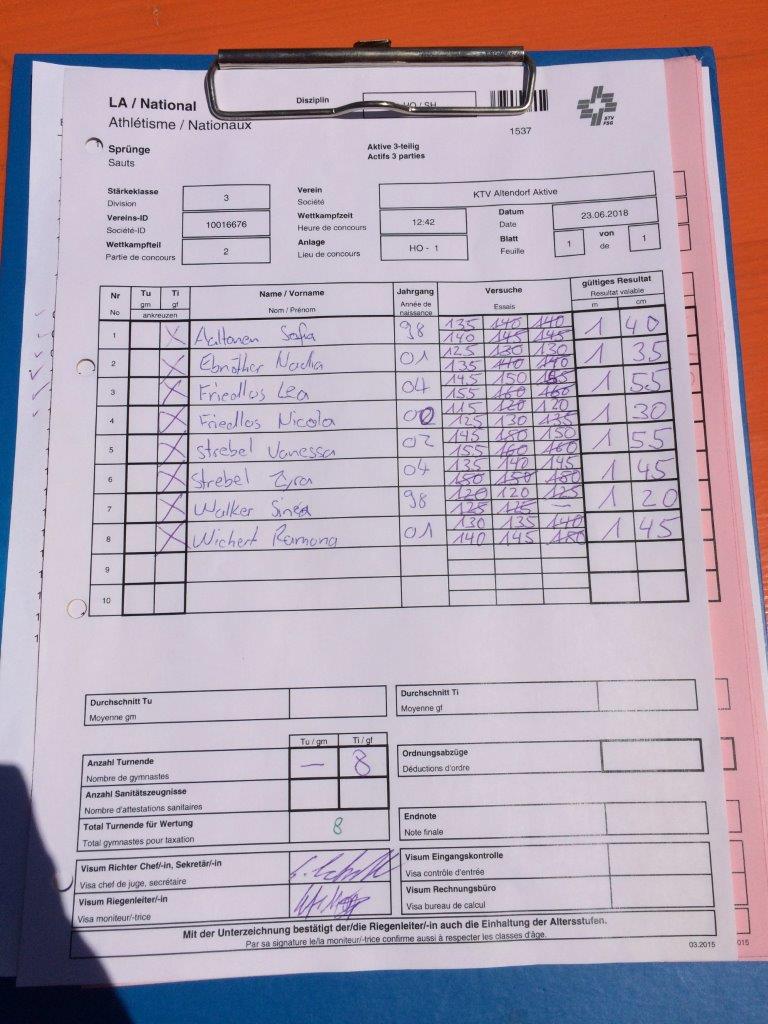 LA / National
Disziplin
HO / SH
Athlétisme / Nationaux
1537
STV
FSG
Sprünge
Sauts
Aktive 3-teilig
Actifs 3 parties
Stärkeklasse
Division
3
Verein
Société
KTV Altendorf Aktive
Vereins-ID
Société-ID
10016676
Wettkampfzeit
Heure de concours
12:42
Datum
Date
23.06.2018
Wettkampfteil
Partie de concours
2
Anlage
Lieu de concours
HO - 1
Blatt
Feuille
1
von
de
1
Nr
No
Tu
gm
Ti
gf
ankreuzen
Name / Vorname
Nom / Prénom
Jahrgang
Année de
naissance
Versuche
Essais
gültiges Resultat
Resultat valable
m
cm
1 X Aaltonen Sofia 98 135 140 140 1 40
140 145 145
2 X Ebnöther Nadia 01 125 130 130 1 35
135 140 140
3 X Friedlos Lea 04 145 150 1 55
155 160 160
4 X Friedlos Nicola 00 115 120 120 1 30
125 130 135
5 X Strebel Vanessa 02 145 150 150 1 55
155 160 160
6 X Strebel Zyra 04 135 140 145 1 45
150 150 150
7 X Walker 98 120 120 125 1 20
125 125 —
8 X Wichert Ramona 01 130 135 140 1 45
140 145 150
9
10
Durchschnitt Tu
Moyenne gm
Durchschnitt Ti
Moyenne gf
Tu / gm
Ti / gf
Anzahl Turnende
Nombre de gymnastes
— 8
Ordnungsabzüge
Déductions d'ordre
Anzahl Sanitätszeugnisse
Nombre d'attestations sanitaires
Total Turnende für Wertung
Total gymnastes pour taxation
8
Endnote
Note finale
Visum Richter Chef/-in, Sekretär/-in
Visa chef de juge, secrétaire
Visum Eingangskontrolle
Visa contrôle d'entrée
Visum Riegenleiter/-in
Visa moniteur/-trice
Visum Rechnungsbüro
Visa bureau de calcul
Mit der Unterzeichnung bestätigt der/die Riegenleiter/-in auch die Einhaltung der Altersstufen.
Par sa signature le/la moniteur/-trice confirme aussi à respecter les classes d'âge.
03.2015
015